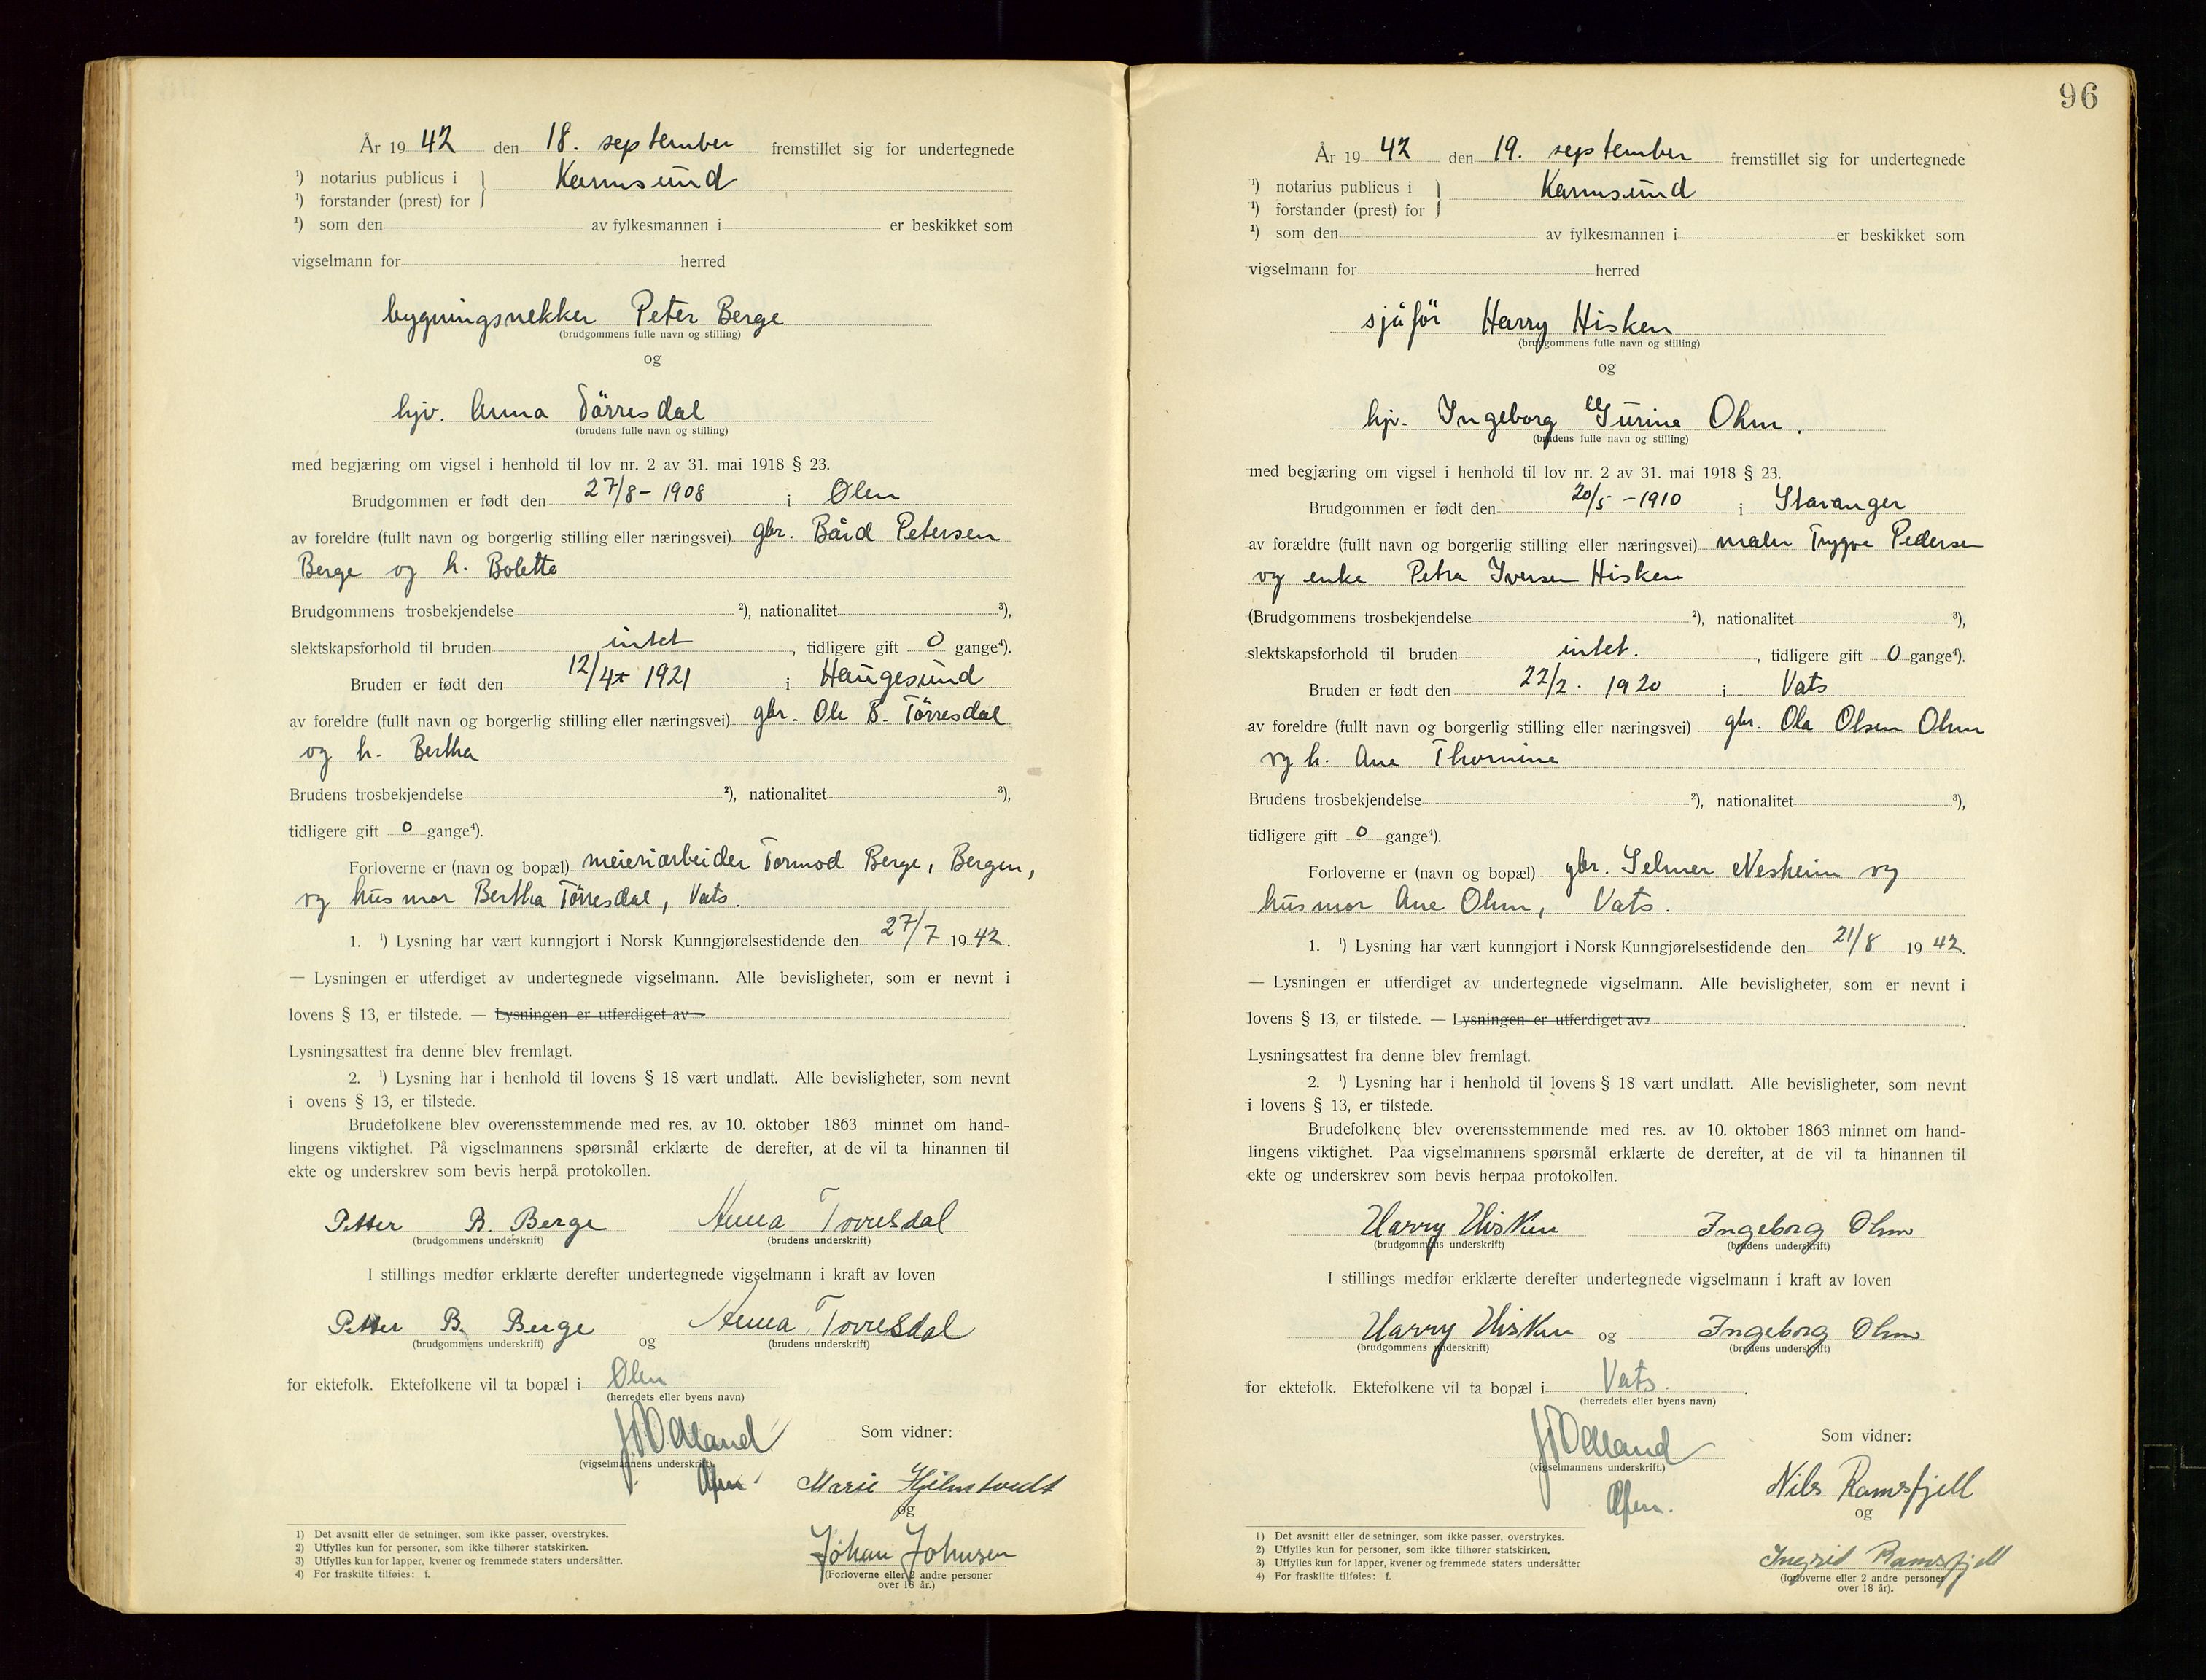 År 19 42 den 18. september fremstillet sig for undertegnede
¹) notarius publicus i } Karmsund
¹) forstander (prest) for
¹) som den av fylkesmannen i er beskikket som
vigselmann for herred
bygningsnekker Peter Berge
(brudgommens fulle navn og stilling)
og
hjv. Anna Törresdal
(brudens fulle navn og stilling)
med begjæring om vigsel i henhold til lov nr. 2 av 31. mai 1918 § 23.
Brudgommen er født den 27/8 - 1908 i Ølen
av foreldre (fullt navn og borgerlig stilling eller næringsvei) gbr. Bård Petersen
Berge og h. Bolette
Brudgommens trosbekjendelse ²), nationalitet ³),
slektskapsforhold til bruden intet, tidligere gift 0 gange⁴).
Bruden er født den 12/4 1921 i Haugesund
av foreldre (fullt navn og borgerlig stilling eller næringsvei) gbr. Ole B. Törresdal
og h. Bertha
Brudens trosbekjendelse ²), nationalitet ³),
tidligere gift 0 gange⁴).
Forloverne er (navn og bopæl) meieriarbeider Tormod Berge, Bergen,
og husmor Bertha Törresdal, Vats.
1. ¹) Lysning har vært kunngjort i Norsk Kunngjørelsestidende den 27/7 19 42.
— Lysningen er utferdiget av undertegnede vigselmann. Alle bevisligheter, som er nevnt i
lovens § 13, er tilstede. — Lysningen er utferdiget av
Lysningsattest fra denne blev fremlagt.
2. ¹) Lysning har i henhold til lovens § 18 vært undlatt. Alle bevisligheter, som nevnt
i ovens § 13, er tilstede.
Brudefolkene blev overensstemmende med res. av 10. oktober 1863 minnet om hand-
lingens viktighet. På vigselmannens spørsmål erklærte de derefter, at de vil ta hinannen til
ekte og underskrev som bevis herpå protokollen.
Petter B. Berge Anna Torresdal
(brudgommens underskrift) (brudens underskrift)
I stillings medfør erklærte derefter undertegnede vigselmann i kraft av loven
Petter B. Berge og Anna Torresdal
(brudgommens underskrift) (brudens underskrift)
for ektefolk. Ektefolkene vil ta bopæl i Ølen
(herredets eller byens navn)
Som vidner:
(vigselmannens underskrift)
Marie Hjelmtveidt
og
Johan Johnsen
(Forloverne eller 2 andre personer
over 18 år.)
1) Det avsnitt eller de setninger, som ikke passer, overstrykes.
2) Utfylles kun for personer, som ikke tilhører statskirken.
3) Utfylles kun for lapper, kvener og fremmede staters undersåtter.
4) For fraskilte tilføies: f.
96
År 19 42 den 19. september fremstillet sig for undertegnede
¹) notarius publicus i } Karmsund
¹) forstander (prest) for
¹) som den av fylkesmannen i er beskikket som
vigselmann for herred
sjåför Harry Hisken
(brudgommens fulle navn og stilling)
og
hjv. Ingeborg Gurine Ohm.
(brudens fulle navn og stilling)
med begjæring om vigsel i henhold til lov nr. 2 av 31. mai 1918 § 23.
Brudgommen er født den 20/5 - 1910 i Stavanger
av forældre (fullt navn og borgerlig stilling eller næringsvei) maler Trygve Pedersen
og enke Petra Iversen Hisken
(Brudgommens trosbekjendelse ²), nationalitet ³),
slektskapsforhold til bruden intet., tidligere gift 0 gange⁴).
Bruden er født den 22/2. 1920 i Vats
av foreldre (fullt navn og borgerlig stilling eller næringsvei) gbr. Ola Olsen Ohm
og h. Ane Thomine
Brudens trosbekjendelse ²), nationalitet ³),
tidligere gift 0 gange⁴).
Forloverne er (navn og bopæl) gbr. Selmer Nesheim og
husmor Ane Ohm, Vats.
1. ¹) Lysning har vært kunngjort i Norsk Kunngjørelsestidende den 21/8 19 42.
— Lysningen er utferdiget av undertegnede vigselmann. Alle bevisligheter, som er nevnt i
lovens § 13, er tilstede. — Lysningen er utferdiget av
Lysningsattest fra denne blev fremlagt.
2. ¹) Lysning har i henhold til lovens § 18 vært undlatt. Alle bevisligheter, som nevnt
i lovens § 13, er tilstede.
Brudefolkene blev overensstemmende med res. av 10. oktober 1863 minnet om hand-
lingens viktighet. Paa vigselmannens spørsmål erklærte de derefter, at de vil ta hinannen til
ekte og underskrev som bevis herpaa protokollen.
Harry Hisken Ingeborg Ohm
(brudgommens underskrift) (brudens underskrift)
I stillings medfør erklærte derefter undertegnede vigselmann i kraft av loven
Harry Hisken og Ingeborg Ohm
(brudgommens underskrift) (brudens underskrift)
for ektefolk. Ektefolkene vil ta bopæl i Vats.
(herredets eller byens navn)
Som vidner:
(vigselmannens underskrift.)
Nils Ramsfjell
og
Ingrid Ramsfjell
(forloverne eller 2 andre personer
over 18 år).
1) Det avsnitt eller de setninger, som ikke passer, overstrykes.
2) Utfylles kun for personer, som ikke tilhører statskirken.
3) Utfylles kun for lapper, kvener og fremmede staters undersåtter
4) For fraskilte tilføies: f.